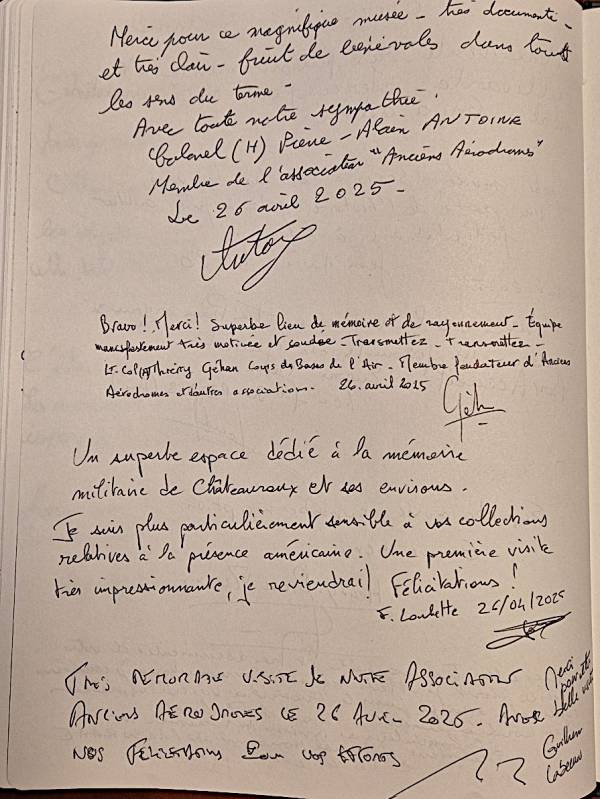 Merci pour ce magnifique musée - très documenté -
et très clair - fruit de bénévoles dans tous
les sens du terme -
Avec toute notre sympathie !
Colonel (H) Pierre-Alain ANTOINE
Membre de l'association "Anciens Aérodromes"
Le 26 avril 2025 -
Bravo ! Merci ! Superbe lieu de mémoire et de rayonnement - Équipe
manifestement très motivée et soudée - Transmettez - Transmettez -
Lt. Col Thierry Géhan Corps des Bases de l'Air - Membre fondateur d'Anciens
Aérodromes et d'autres associations - 26 avril 2025
Un superbe espace dédié à la mémoire
militaire de Châteauroux et ses environs.
Je suis plus particulièrement sensible à vos collections
relatives à la présence américaine. Une première visite
très impressionnante, je reviendrai ! Félicitations !
F. 26/04/2025
TRÈS MEMORABLE VISITE DE NOTRE ASSOCIATION
ANCIENS AÉRODROMES CE 26 AVRIL 2025. AVEC
NOS FÉLICITATIONS POUR VOS EFFORTS
Merci
pour cette
belle visite
Guilhem